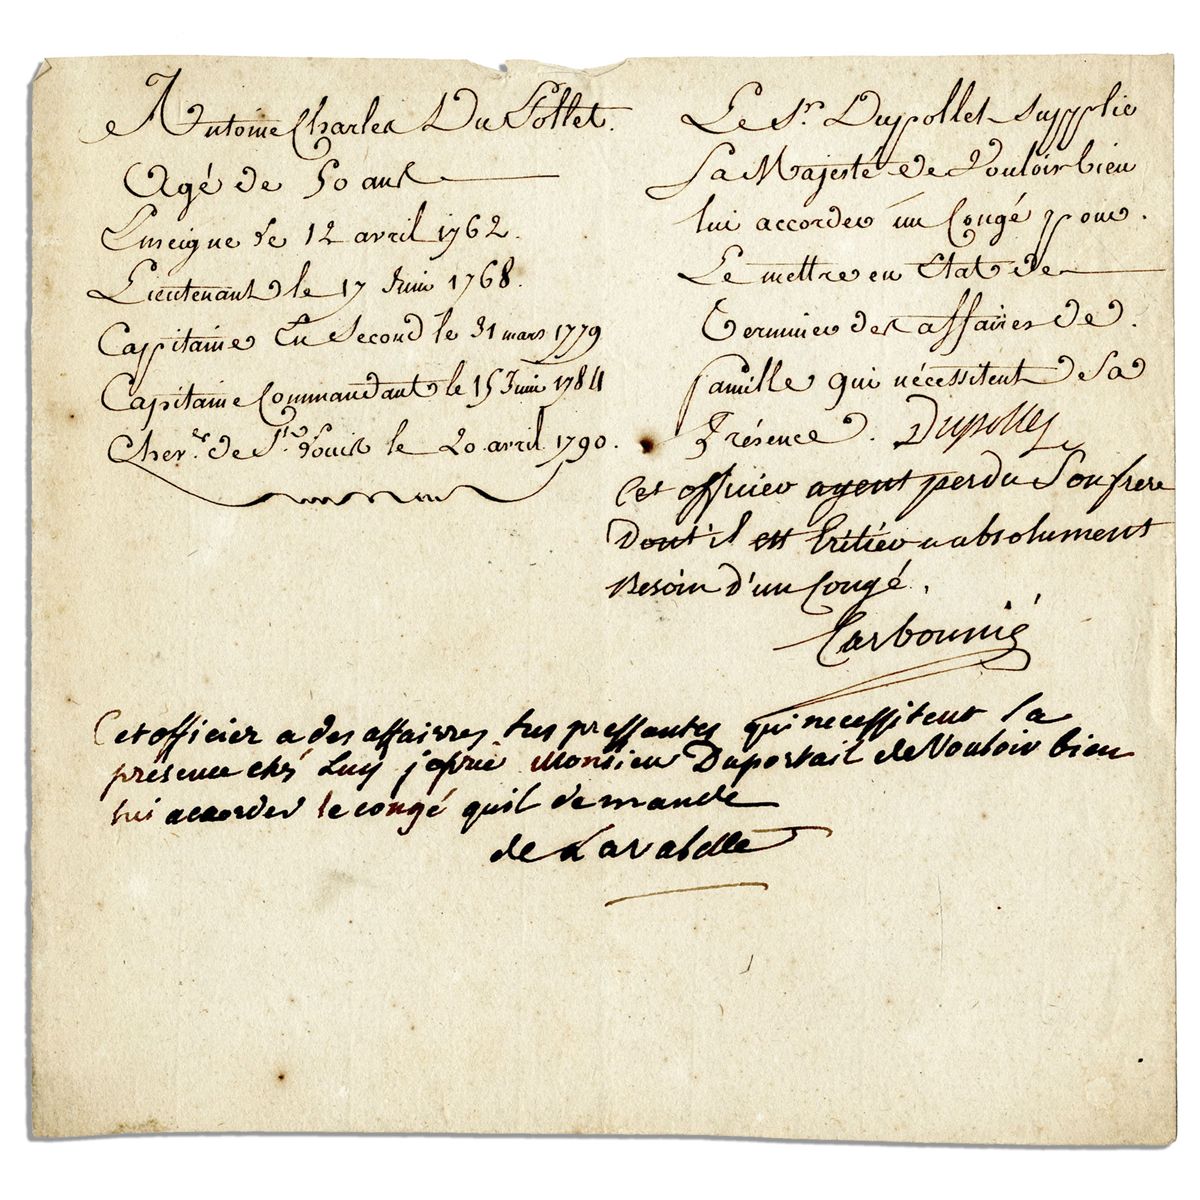 Antoine Charles Du Pollet.
Agé de 50 ans
Enseigne le 12 avril 1762.
Lieutenant le 17 Juin 1768.
Capitaine En Second le 31 mars 1779
Capitaine Commandant le 15 Juin 1784
Cher. de St. Louis le 20 avril 1790.
Le Sr. Dupollet supplie
Sa Majesté de Vouloir bien
lui accorder un Congé pour
Le mettre en Etat de
terminer des affaires de
famille qui nécessitent Sa
Présence. Dupollet
Cet officier ayent perdu Son frere
Dont il est éritier a absolument
Besoin d'un Congé.
Carbonnié
Cet officier a des affaires tres pressantes qui necessitent sa
présence chés Luy je prie Monsieur Duportail de Vouloir bien
lui accorder le congé quil demande
de Lavabelle